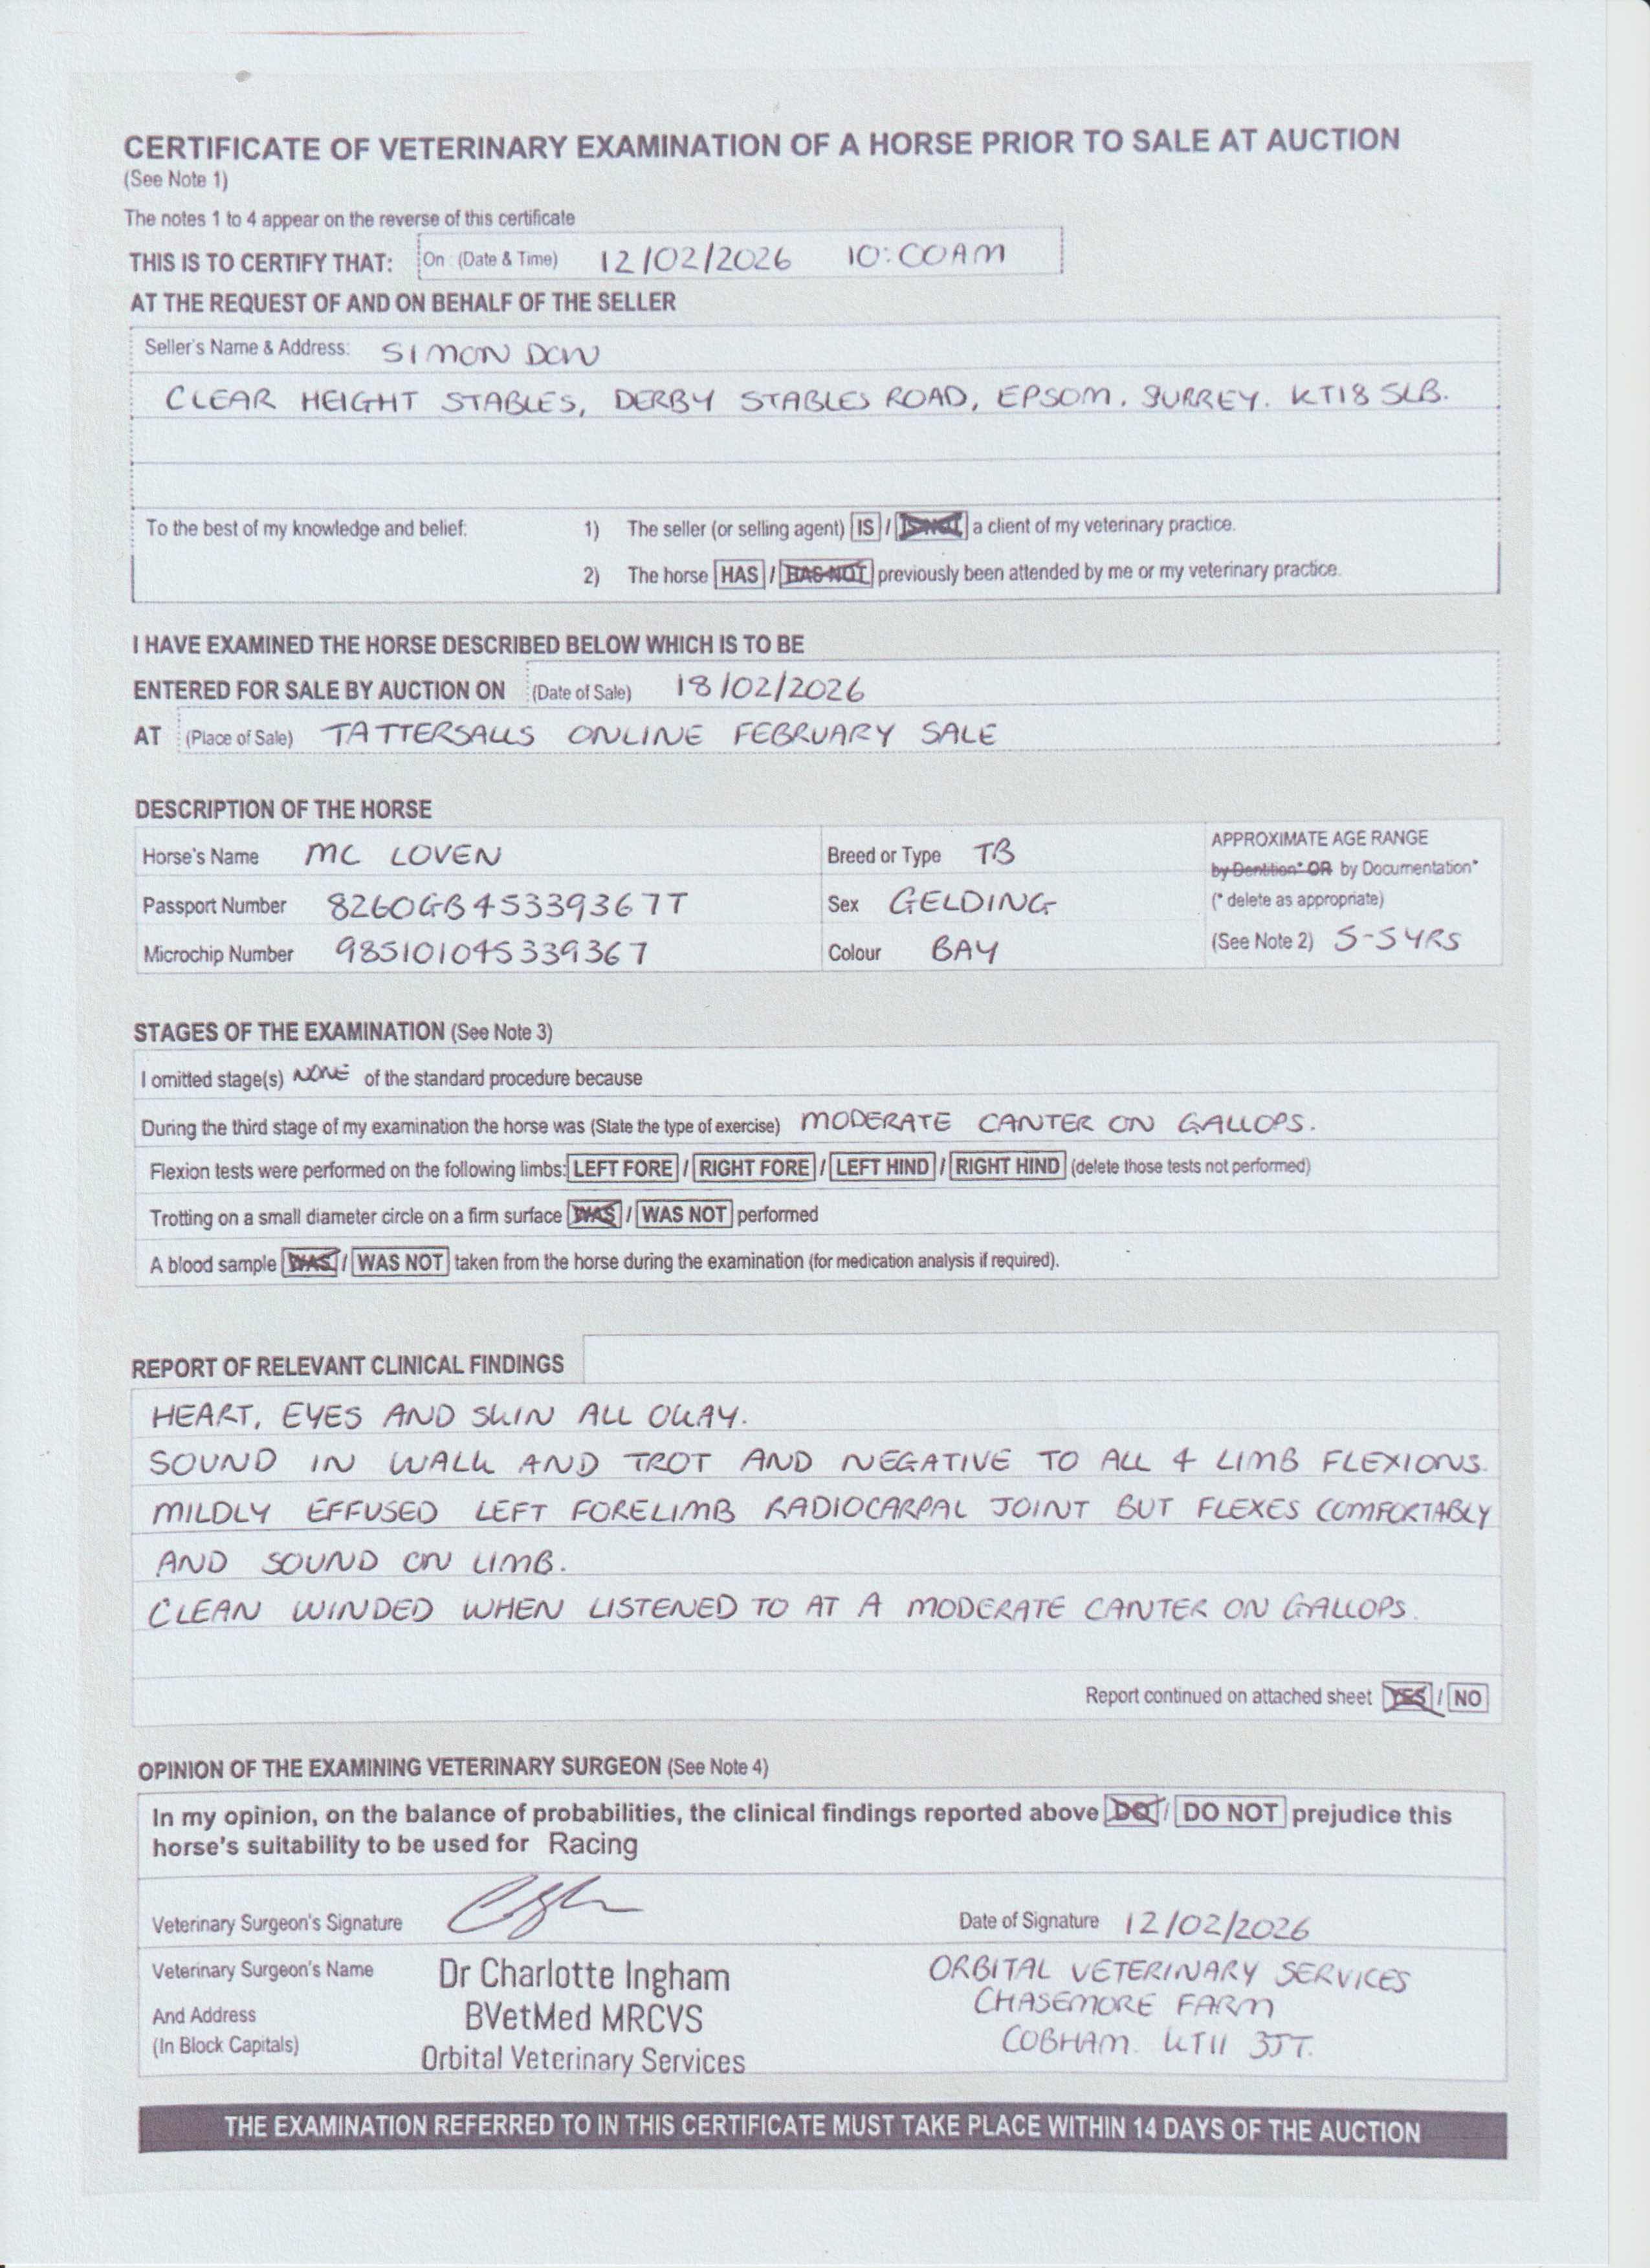 CERTIFICATE OF VETERINARY EXAMINATION OF A HORSE PRIOR TO SALE AT AUCTION
(See Note 1)
The notes 1 to 4 appear on the reverse of this certificate
THIS IS TO CERTIFY THAT: On (Date & Time) 12/02/2026 10:00AM
AT THE REQUEST OF AND ON BEHALF OF THE SELLER
Seller's Name & Address: SIMON DOW
CLEAR HEIGHT STABLES, DERBY STABLES ROAD, EPSOM. SURREY. KT18 5LB.
To the best of my knowledge and belief: 1) The seller (or selling agent) IS / IS NOT a client of my veterinary practice.
2) The horse HAS / HAS NOT previously been attended by me or my veterinary practice.
I HAVE EXAMINED THE HORSE DESCRIBED BELOW WHICH IS TO BE
ENTERED FOR SALE BY AUCTION ON (Date of Sale) 18/02/2026
AT (Place of Sale) TATTERSALLS ONLINE FEBRUARY SALE
DESCRIPTION OF THE HORSE
Horse's Name MC LOVEN Breed or Type TB APPROXIMATE AGE RANGE
by Dentition* OR by Documentation*
Passport Number 8260GB45339367T Sex GELDING (* delete as appropriate)
Microchip Number 985101045339367 Colour BAY (See Note 2) 5-5YRS
STAGES OF THE EXAMINATION (See Note 3)
I omitted stage(s) NONE of the standard procedure because
During the third stage of my examination the horse was (State the type of exercise) MODERATE CANTER ON GALLOPS.
Flexion tests were performed on the following limbs: LEFT FORE / RIGHT FORE / LEFT HIND / RIGHT HIND (delete those tests not performed)
Trotting on a small diameter circle on a firm surface WAS / WAS NOT performed
A blood sample WAS / WAS NOT taken from the horse during the examination (for medication analysis if required).
REPORT OF RELEVANT CLINICAL FINDINGS
HEART, EYES AND SKIN ALL OKAY.
SOUND IN WALK AND TROT AND NEGATIVE TO ALL 4 LIMB FLEXIONS.
MILDLY EFFUSED LEFT FORELIMB RADIOCARPAL JOINT BUT FLEXES COMFORTABLY
AND SOUND ON LIMB.
CLEAN WINDED WHEN LISTENED TO AT A MODERATE CANTER ON GALLOPS.
Report continued on attached sheet YES / NO
OPINION OF THE EXAMINING VETERINARY SURGEON (See Note 4)
In my opinion, on the balance of probabilities, the clinical findings reported above DO / DO NOT prejudice this
horse's suitability to be used for Racing
Veterinary Surgeon's Signature Date of Signature 12/02/2026
Veterinary Surgeon's Name Dr Charlotte Ingham ORBITAL VETERINARY SERVICES
And Address BVetMed MRCVS CHASEMORE FARM
(In Block Capitals) Orbital Veterinary Services COBHAM. KT11 3JT.
THE EXAMINATION REFERRED TO IN THIS CERTIFICATE MUST TAKE PLACE WITHIN 14 DAYS OF THE AUCTION